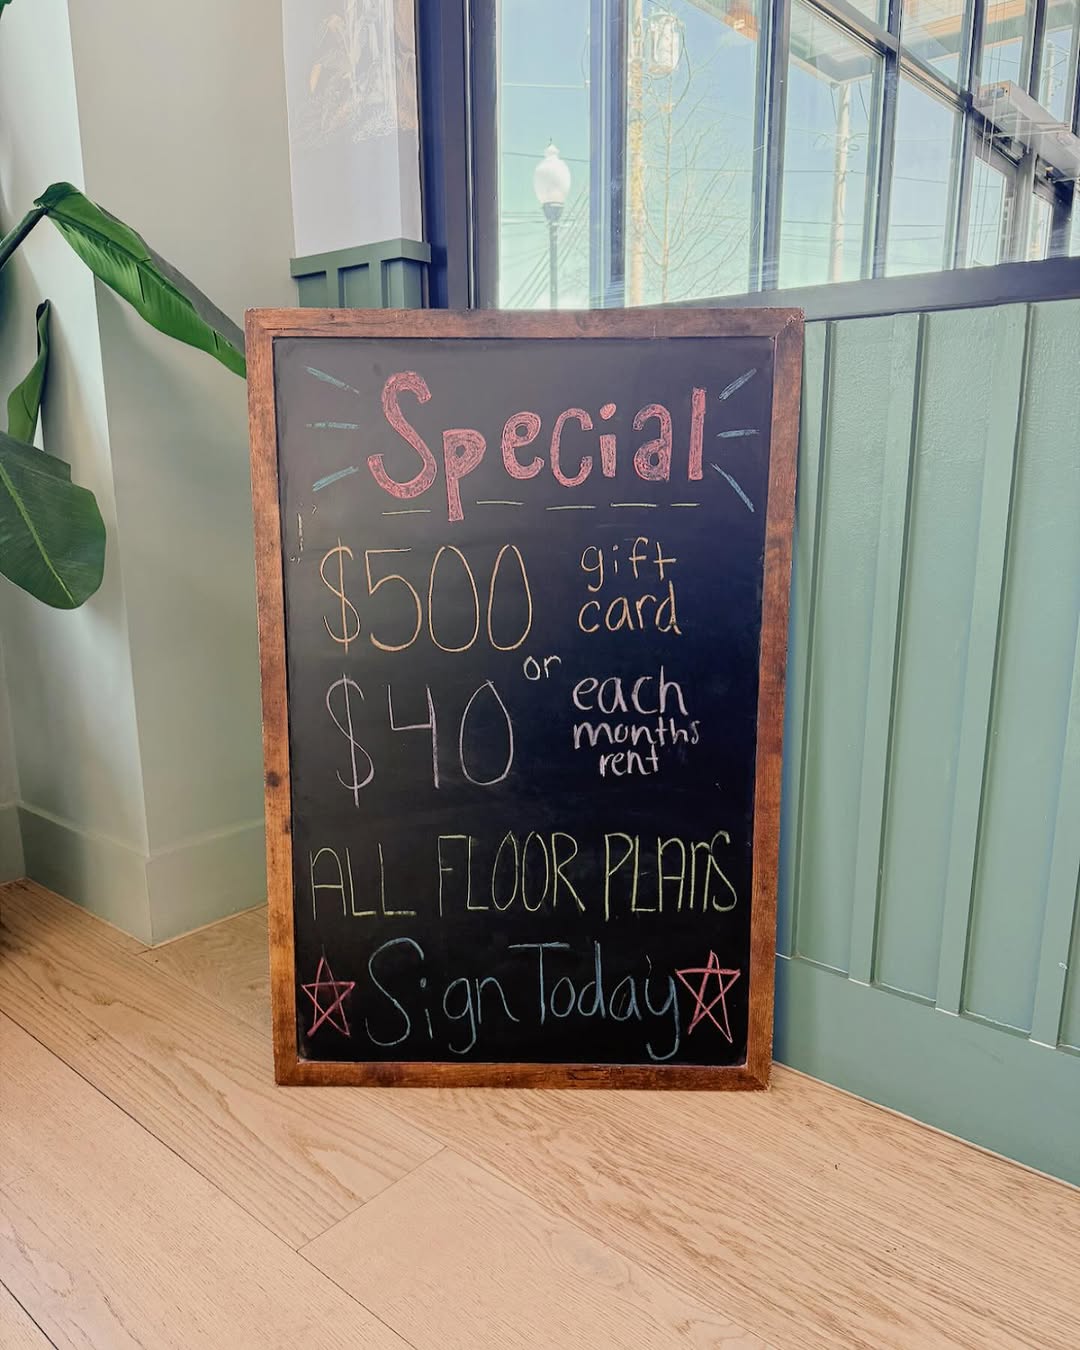 Special
$500 gift card
or
$40 each months rent
ALL FLOOR PLANS
Sign Today